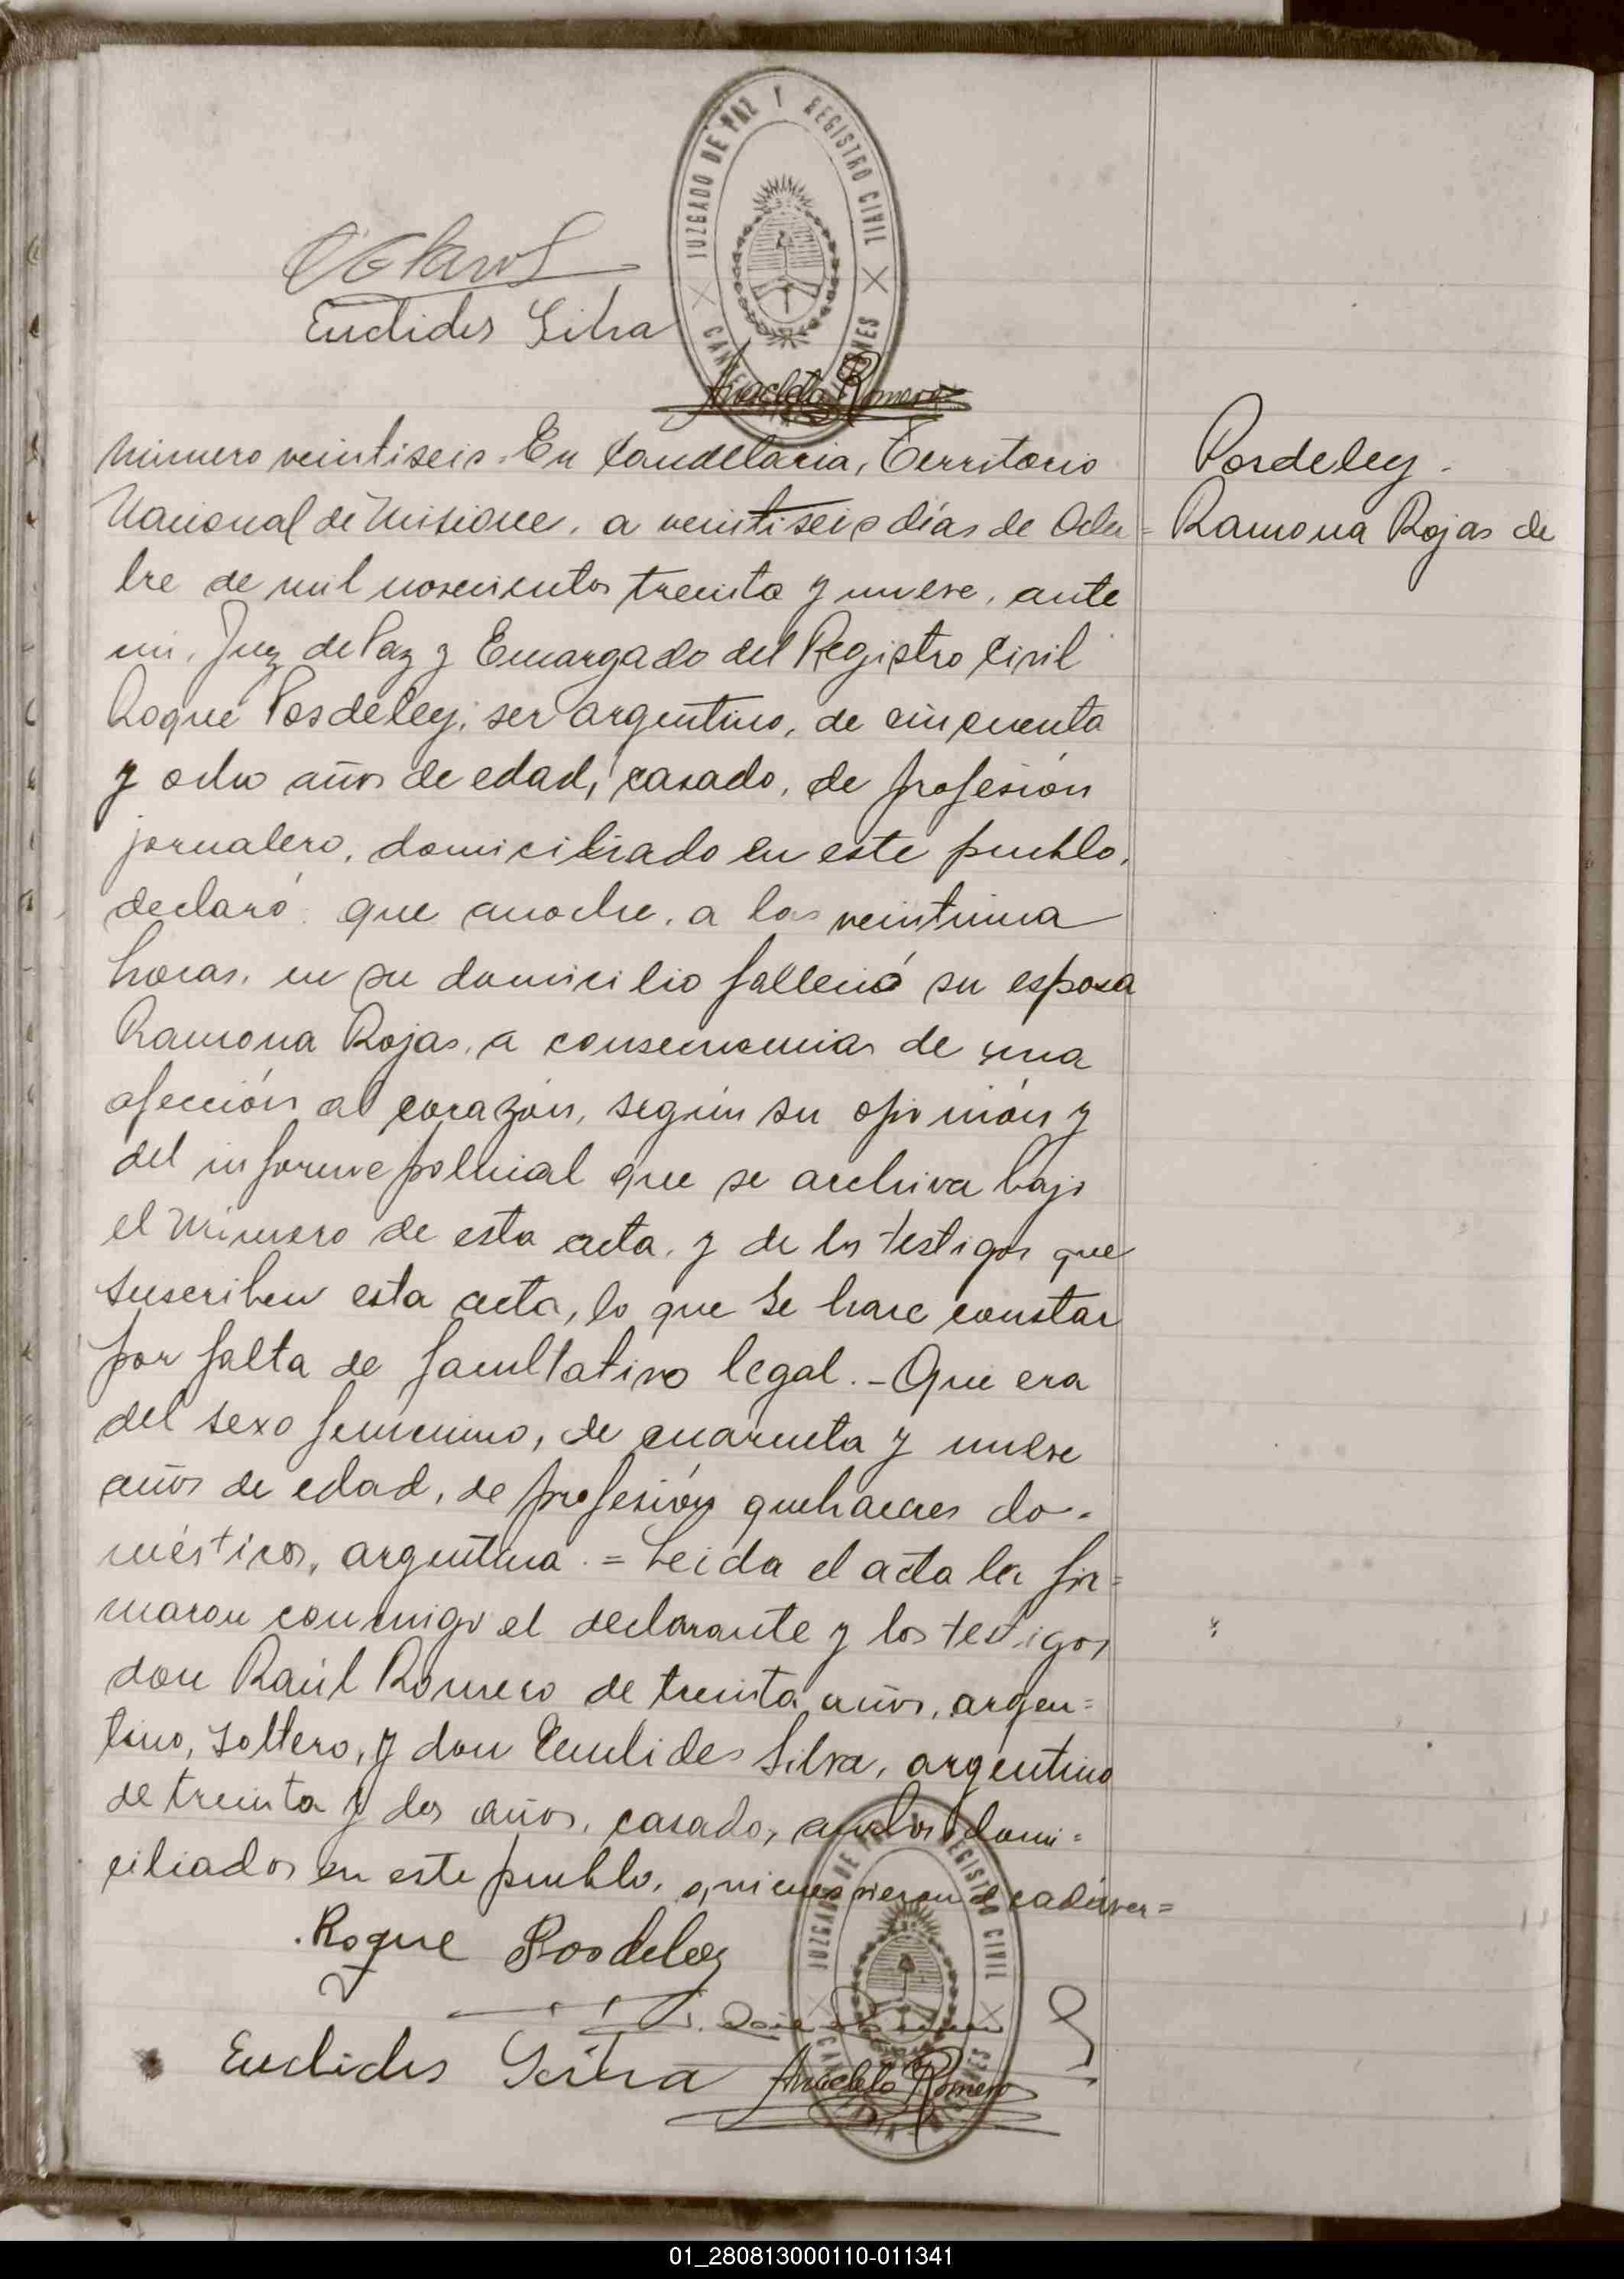 JUZGADO DE PAZ Y REGISTRO CIVIL
Euclides Silva
Anacleto Romero
Número veintiseis. En Candelaria, Territorio
Nacional de Misione, a veintiseis días de Octu=
bre de mil novecientos treinta y nueve, ante
mi, Juez de Paz y Encargado del Registro Civil
Roque Posdeley, ser argentino, de cincuenta
y ocho años de edad, casado, de profesión
jornalero, domiciliado en este pueblo,
declaró: que anoche, a las veintiuna
horas, en su domicilio falleció su esposa
Ramona Rojas, a consecuencias de una
afección al corazón, según su opinión y
del informe policial que se archiva bajo
el número de esta acta, y de los testigos que
suscriben esta acta, lo que se hace constar
por falta de facultativo legal.- Que era
del sexo femenino, de cuarenta y nueve
años de edad, de profesión quehaceres do-
mésticos, argentina.= Leida el acta la fir=
maron conmigo el declarante y los testigos
don Raúl Romero de treinta años, argen=
tino, soltero, y don Euclides Silva, argentino
de treinta y dos años, casado, ambos domi=
ciliados en este pueblo, quienes vieron el cadáver=
Posdeley.
Ramona Rojas de
Roque Posdeley
JUZGADO DE PAZ Y REGISTRO CIVIL
Euclides Silva
Anacleto Romero
01_280813000110-011341